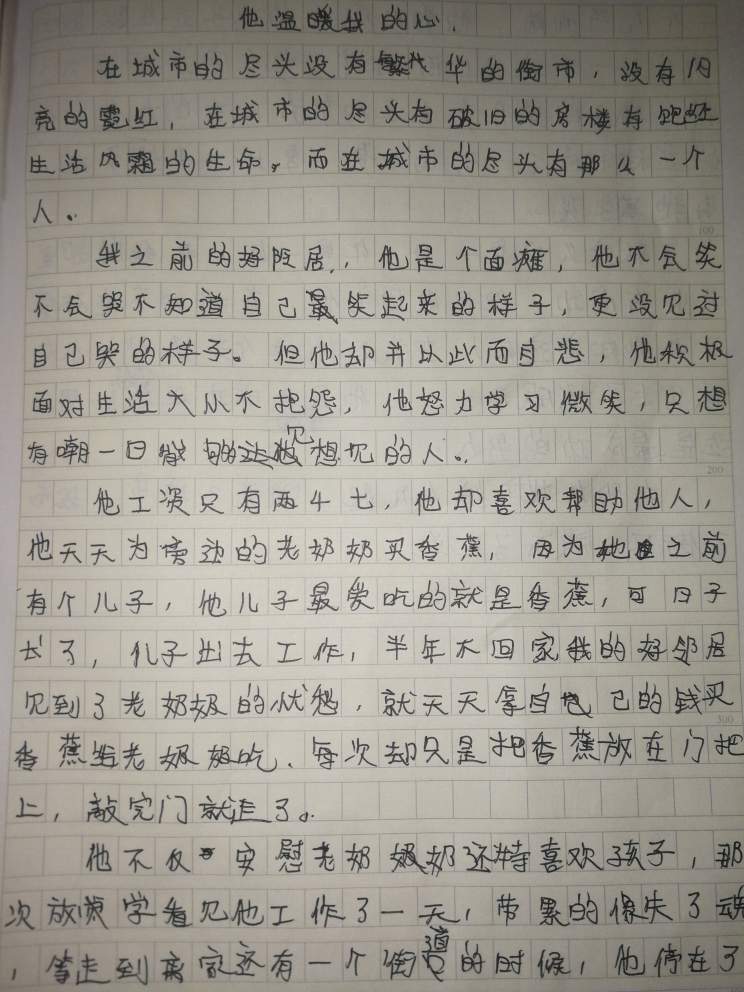 他温暖我的心.
在城市的尽头没有繁华的街市，没有闪
亮的霓红，在城市的尽头有破旧的房楼有饱经
生活风霜的生命。而在城市的尽头有那么一个
人。
我之前的好邻居，他是个面瘫，他不会笑
不会哭不知道自己最笑起来的样子，更没见过
自己哭的样子。但他却并以此而自悲，他积极
面对生活大从不抱怨，他怒力学习微笑，只想
有嘲一日能够达见想见的人。
他工资只有两4七，他却喜欢帮助他人，
他天天为旁边的老奶奶买香蕉，因为她之前
有个儿子，他儿子最爱吃的就是香蕉，可日子
长了，儿子出去工作，半年不回家我的好邻居
见到了老奶奶的忧愁，就天天拿自己的钱买
香蕉给老奶奶吃.每次却只是把香蕉放在门把
上，敲完门就走了。
他不仅安慰老奶奶还特喜欢孩子，那
次放学看见他工作了一天，带累的像失了魂
，等走到离家还有一个街道的时候，他停在了
100
200
300